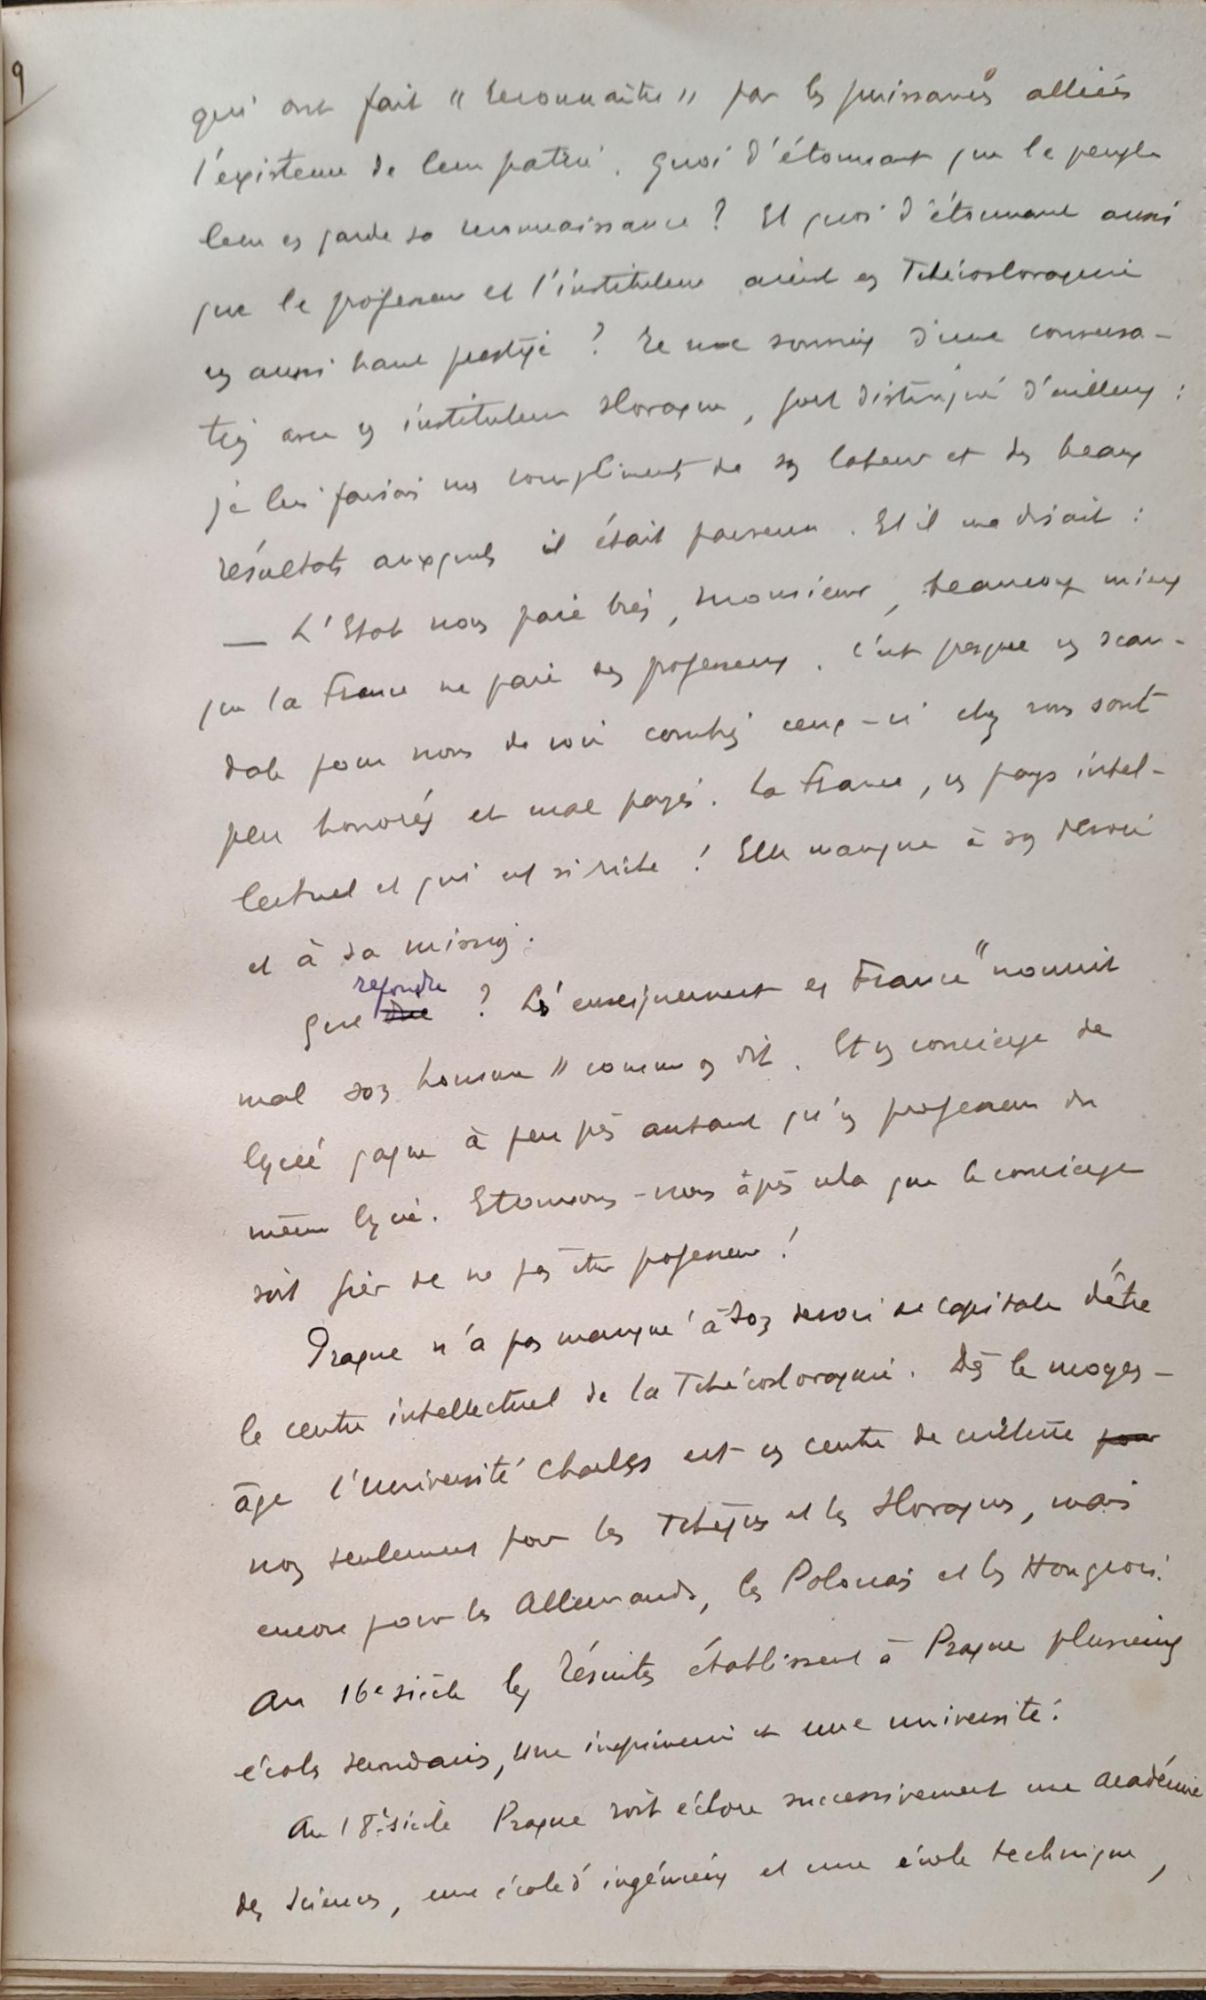 9
qui ont fait "reconnaître" par les puissances alliées
l'existence de leur patrie. Quoi d'étonnant que le peuple
leur en garde sa reconnaissance ? Et quoi d'étonnant aussi
que le professeur et l'instituteur aient en Tchécoslovaquie
un aussi haut prestige ? Je me souviens d'une conversa-
tion avec un instituteur slovaque, fort distingué d'ailleurs :
je lui faisais mes compliments de son labeur et des beaux
résultats auxquels il était parvenu. Et il me disait :
— L'Etat nous paie bien, Monsieur, beaucoup mieux
que la France ne paie ses professeurs. C'est presque un scan-
dale pour nous de voir combien ceux-ci chez vous sont
peu honorés et mal payés. La France, un pays intel-
lectuel et qui est si riche ! Elle manque à son devoir
et à sa mission.
répondre
Que dire ? L'enseignement en France "nourrit
mal son homme" comme on dit. Et un concierge de
lycée gagne à peu près autant qu'un professeur du
même lycée. Etonnons-nous après cela que le concierge
soit fier de ne pas être professeur !
Prague n'a pas manqué à son devoir de capitale d'être
le centre intellectuel de la Tchécoslovaquie. Dès le moyen-
âge l'Université Charles est un centre de culture pour
non seulement pour les Tchèques et les Slovaques, mais
encore pour les Allemands, les Polonais et les Hongrois.
Au 16e siècle les Jésuites établissent à Prague plusieurs
écoles secondaires, une imprimerie et une université.
Au 18e siècle Prague voit éclore successivement une académie
des sciences, une école d'ingénieurs et une école technique,